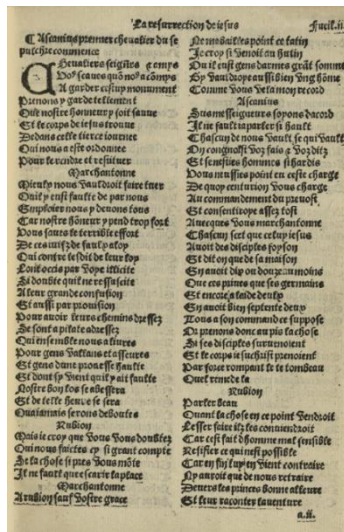 La resurrection de iesus
Fueil.ii
Ascanius premier cheualier du se
pulchre commence
Cheualiers seigñrs ⁊ amys
Uo⁹ scaues quõ no⁹ a cõmys
A garder cestuy monument
Prenons y garde tellement
Que nostre honneur y soit sauue
Et le corps de iesus trouue
Dedans ceste littre ce iourner
Qui nous a este ordonnee
Pour le rendre et restituer
Marchantonne
Mieulx nous vauldroit faire tuer
Quil y eust faulte de par nous
Employer nous y deuons tous
Car nostre hõneur y pend trop fort
Uous saues le terrible effort
De ces iuifz de faulx aloy
Qui contre lesdit de leur loy
Lont occis par voye illicite
Si doubte quil ne ressuscite
A leur grande confusion
Et aussi par prouision
Pour auoir leurs chemins dressez
Se sont a pilate adressez
Qui ensemble nous a liures
Pour gens vaillans et asseures
Et gens dune prouesse haulte
Et dont sil vient quil y ait faulte
Nostre bon los se abessera
Et de telle heure se sera
Qua iamais serons deboutes
Rubion
Mais ie croy que vous vous doubtez
Qui nous faictes cy si grant compte
Et la chose si pres vous mõte
Il ne fault que escarir la place
Marchantonne
A rubion sauf vostre grace
Ne mesbailles point ce latin
Ie croy sil venoit au hutin
Ou il eust gens darmes grãt somme
Sy vauldroye aussi bien vng hõme
Comme vous ve la mon record
Ascanius
Sus messeigneurs soyons dacord
Il ne fault ia parler si hault
Chascun de nous vault se qui vault
On congnoist voz fais ⁊ voz ditz
Et sentissies hommes si hardis
Uous nussies point en ceste charge
De quoy centurion vous charge
Au commandement du preuost
Et consentiroye assez tost
Auecques vous marchantonne
Chascun scet que celuy iesus
Auoit des disciples foyson
Et dit on que de sa maison
En auoit dix ou douze au moins
Que ces princes que ses germains
Et encore a laide de luy
En auoit bien septente deux
Tous a son command ce suppose
Or prenons donc au pis la chose
Se ses disciples suruenoient
Et le corps iesuchrist prenoient
Par force rompant le tombeau
Quel remede la
Rubion
Parler beau
Quant la chose en ce point viendroit
Lesser faire il les conuiendroit
Car cest fait dhomme mal sensible
Resister ce qui nest possible
Car en fin luy en vient contraire
Ny auroit que de nous retraire
Deuers les princes bonne alleure
Et leur raconter lauenture
a.ii.